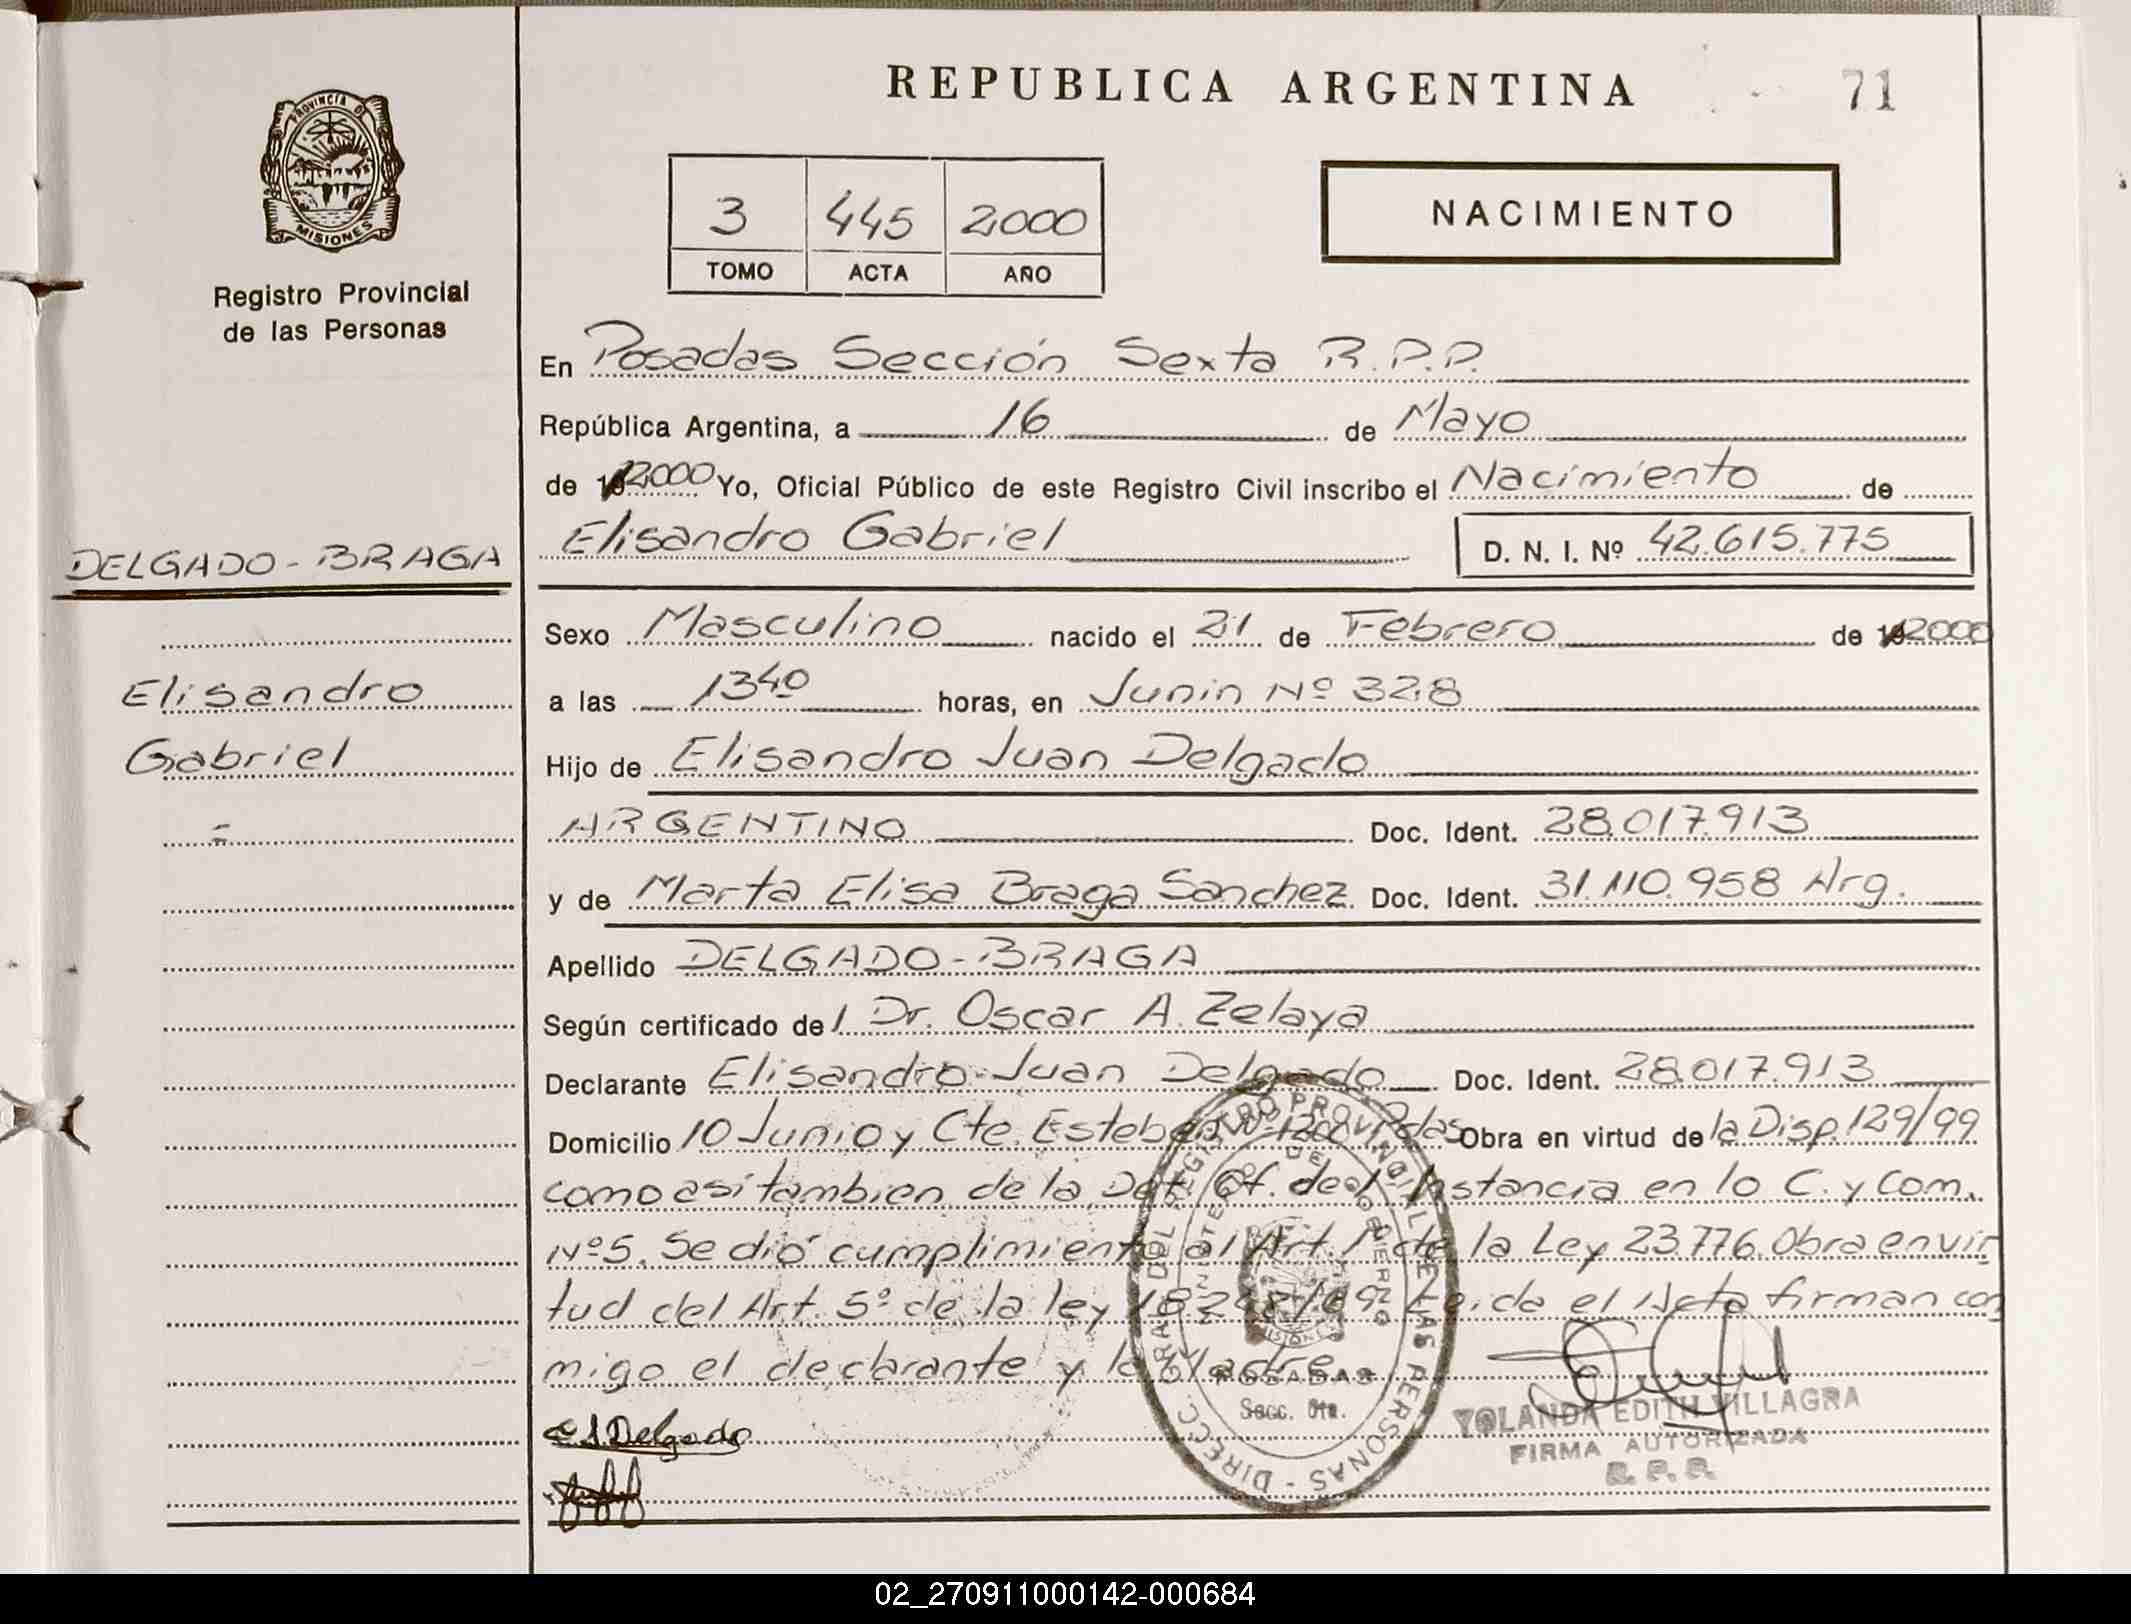 REPUBLICA ARGENTINA
71
PROVINCIA DE
MISIONES
Registro Provincial
de las Personas
3 445 2000
TOMO ACTA AÑO
NACIMIENTO
En Posadas Sección Sexta R.P.P.
República Argentina, a 16 de Mayo
de 2000 Yo, Oficial Público de este Registro Civil inscribo el Nacimiento de
Elisandro Gabriel D. N. I. Nº 42.615.775
DELGADO-BRAGA
Elisandro
Gabriel
Sexo Masculino nacido el 21 de Febrero de 2000
a las 1340 horas, en Junin Nº 328
Hijo de Elisandro Juan Delgado
ARGENTINO Doc. Ident. 28.017.913
y de Marta Elisa Braga Sanchez Doc. Ident. 31.110.958 Arg.
Apellido DELGADO-BRAGA
Según certificado del Dr. Oscar A. Zelaya
Declarante Elisandro Juan Delgado Doc. Ident. 28.017.913
Domicilio 10 Junio y Cte. Pdas Obra en virtud de la Disp. 129/99
como asi tambien de la Def. Of. de 1 Instancia en lo C. y Com.
Nº5. Se dió cumplimiento al Art. 1 de la Ley 23.776. Obra en vir
tud del Art. 5º de la ley 18.248/69. Leida el Acta firman con
migo el declarante y la Madre
E J Delgado
DIRECC. GRAL DEL REGISTRO PROVINCIAL DE LAS PERSONAS
POSADAS
Secc. 6ta.
YOLANDA EDITH VILLAGRA
FIRMA AUTORIZADA
R. P. P.
02_270911000142-000684